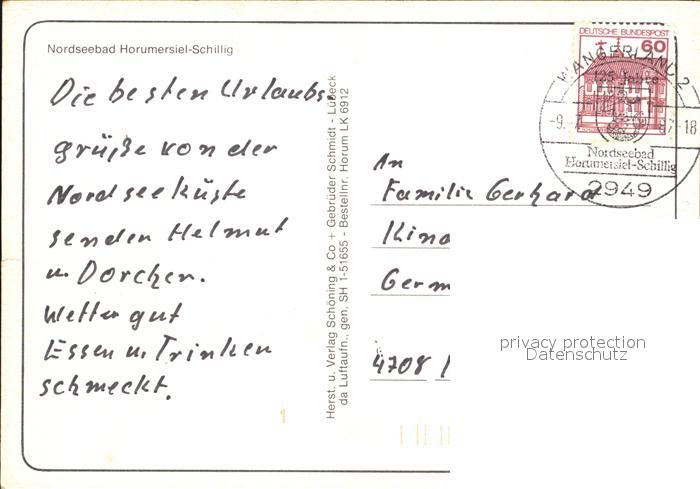 Nordseebad Horumersiel-Schillig
Die besten Urlaubs
grüße von der
Nordseeküste
senden Helmut
u. Dorchen.
Wetter gut
Essen u. Trinken
schmeckt.
1
Herst. u. Verlag Schöning & Co + Gebrüder Schmidt - Lübeck
da Luftaufn., gen. SH 1-51655 - Bestellnr. Horum LK 6912
DEUTSCHE BUNDESPOST
60
WANGERLAND 2
125 Jahre
-9.-7. 87-18
Nordseebad
Horumersiel-Schillig
2949
An
Familie Gerhard
4708
privacy protection
Datenschutz